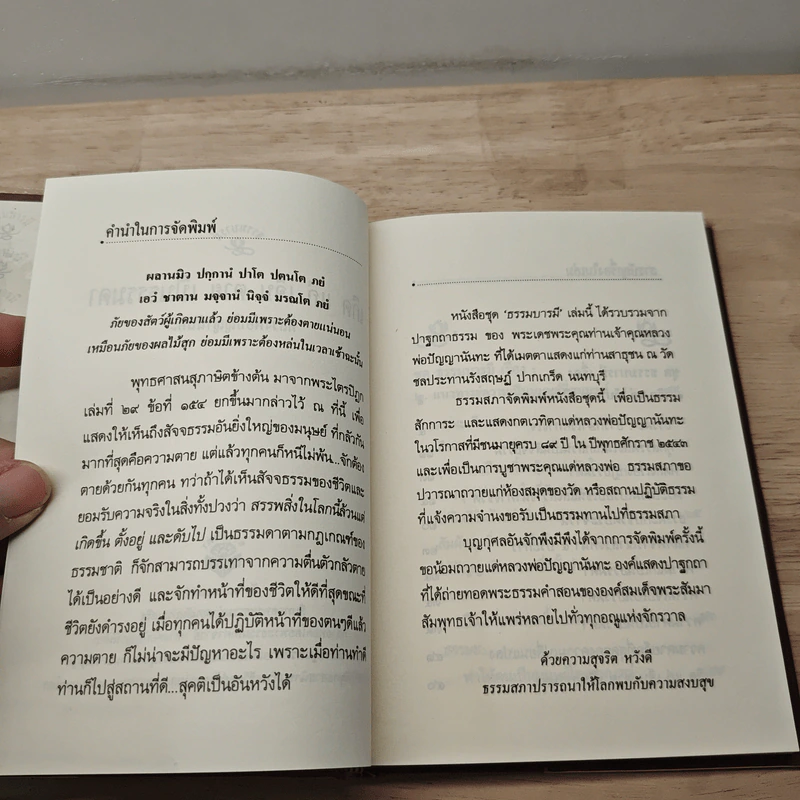 คำนำในการจัดพิมพ์
ผลานมิว ปกฺกานํ ปาโต ปตนโต ภยํ
เอวํ ชาตาน มจฺจานํ นิจฺจํ มรณโต ภยํ
ภัยของสัตว์ผู้เกิดมาแล้ว ย่อมมีเพราะต้องตายแน่นอน
เหมือนภัยของผลไม้สุก ย่อมมีเพราะต้องหล่นในเวลาเช้าฉะนั้น
พุทธศาสนสุภาษิตข้างต้น มาจากพระไตรปิฎก
เล่มที่ ๒๙ ข้อที่ ๑๕๔ ยกขึ้นมากล่าวไว้ ณ ที่นี้ เพื่อ
แสดงให้เห็นถึงสัจจธรรมอันยิ่งใหญ่ของมนุษย์ ที่กลัวกัน
มากที่สุดคือความตาย แต่แล้วทุกคนก็หนีไม่พ้น...จักต้อง
ตายด้วยกันทุกคน ทว่าถ้าได้เห็นสัจจธรรมของชีวิตและ
ยอมรับความจริงในสิ่งทั้งปวงว่า สรรพสิ่งในโลกนี้ล้วนแต่
เกิดขึ้น ตั้งอยู่ และดับไป เป็นธรรมดาตามกฎเกณฑ์ของ
ธรรมชาติ ก็จักสามารถบรรเทาจากความตื่นตัวกลัวตาย
ได้เป็นอย่างดี และจักทำหน้าที่ของชีวิตให้ดีที่สุดขณะที่
ชีวิตยังดำรงอยู่ เมื่อทุกคนได้ปฏิบัติหน้าที่ของตนๆดีแล้ว
ความตาย ก็ไม่น่าจะมีปัญหาอะไร เพราะเมื่อท่านทำดี
ท่านก็ไปสู่สถานที่ดี...สุคติเป็นอันหวังได้
หนังสือชุด ‘ธรรมบารมี’ เล่มนี้ ได้รวบรวมจาก
ปาฐกถาธรรม ของ พระเดชพระคุณท่านเจ้าคุณหลวง
พ่อปัญญานันทะ ที่ได้เมตตาแสดงแก่ท่านสาธุชน ณ วัด
ชลประทานรังสฤษฎ์ ปากเกร็ด นนทบุรี
ธรรมสภาจัดพิมพ์หนังสือชุดนี้ เพื่อเป็นธรรม
สักการะ และแสดงกตเวทิตาแด่หลวงพ่อปัญญานันทะ
ในวโรกาสที่มีชนมายุครบ ๘๙ ปี ใน ปีพุทธศักราช ๒๕๔๓
และเพื่อเป็นการบูชาพระคุณแด่หลวงพ่อ ธรรมสภาขอ
ปวารณาถวายแก่ห้องสมุดของวัด หรือสถานปฏิบัติธรรม
ที่แจ้งความจำนงขอรับเป็นธรรมทานไปที่ธรรมสภา
บุญกุศลอันจักพึงมีพึงได้จากการจัดพิมพ์ครั้งนี้
ขอน้อมถวายแด่หลวงพ่อปัญญานันทะ องค์แสดงปาฐกถา
ที่ได้ถ่ายทอดพระธรรมคำสอนขององค์สมเด็จพระสัมมา
สัมพุทธเจ้าให้แพร่หลายไปทั่วทุกอณูแห่งจักรวาล
ด้วยความสุจริต หวังดี
ธรรมสภาปรารถนาให้โลกพบกับความสงบสุข